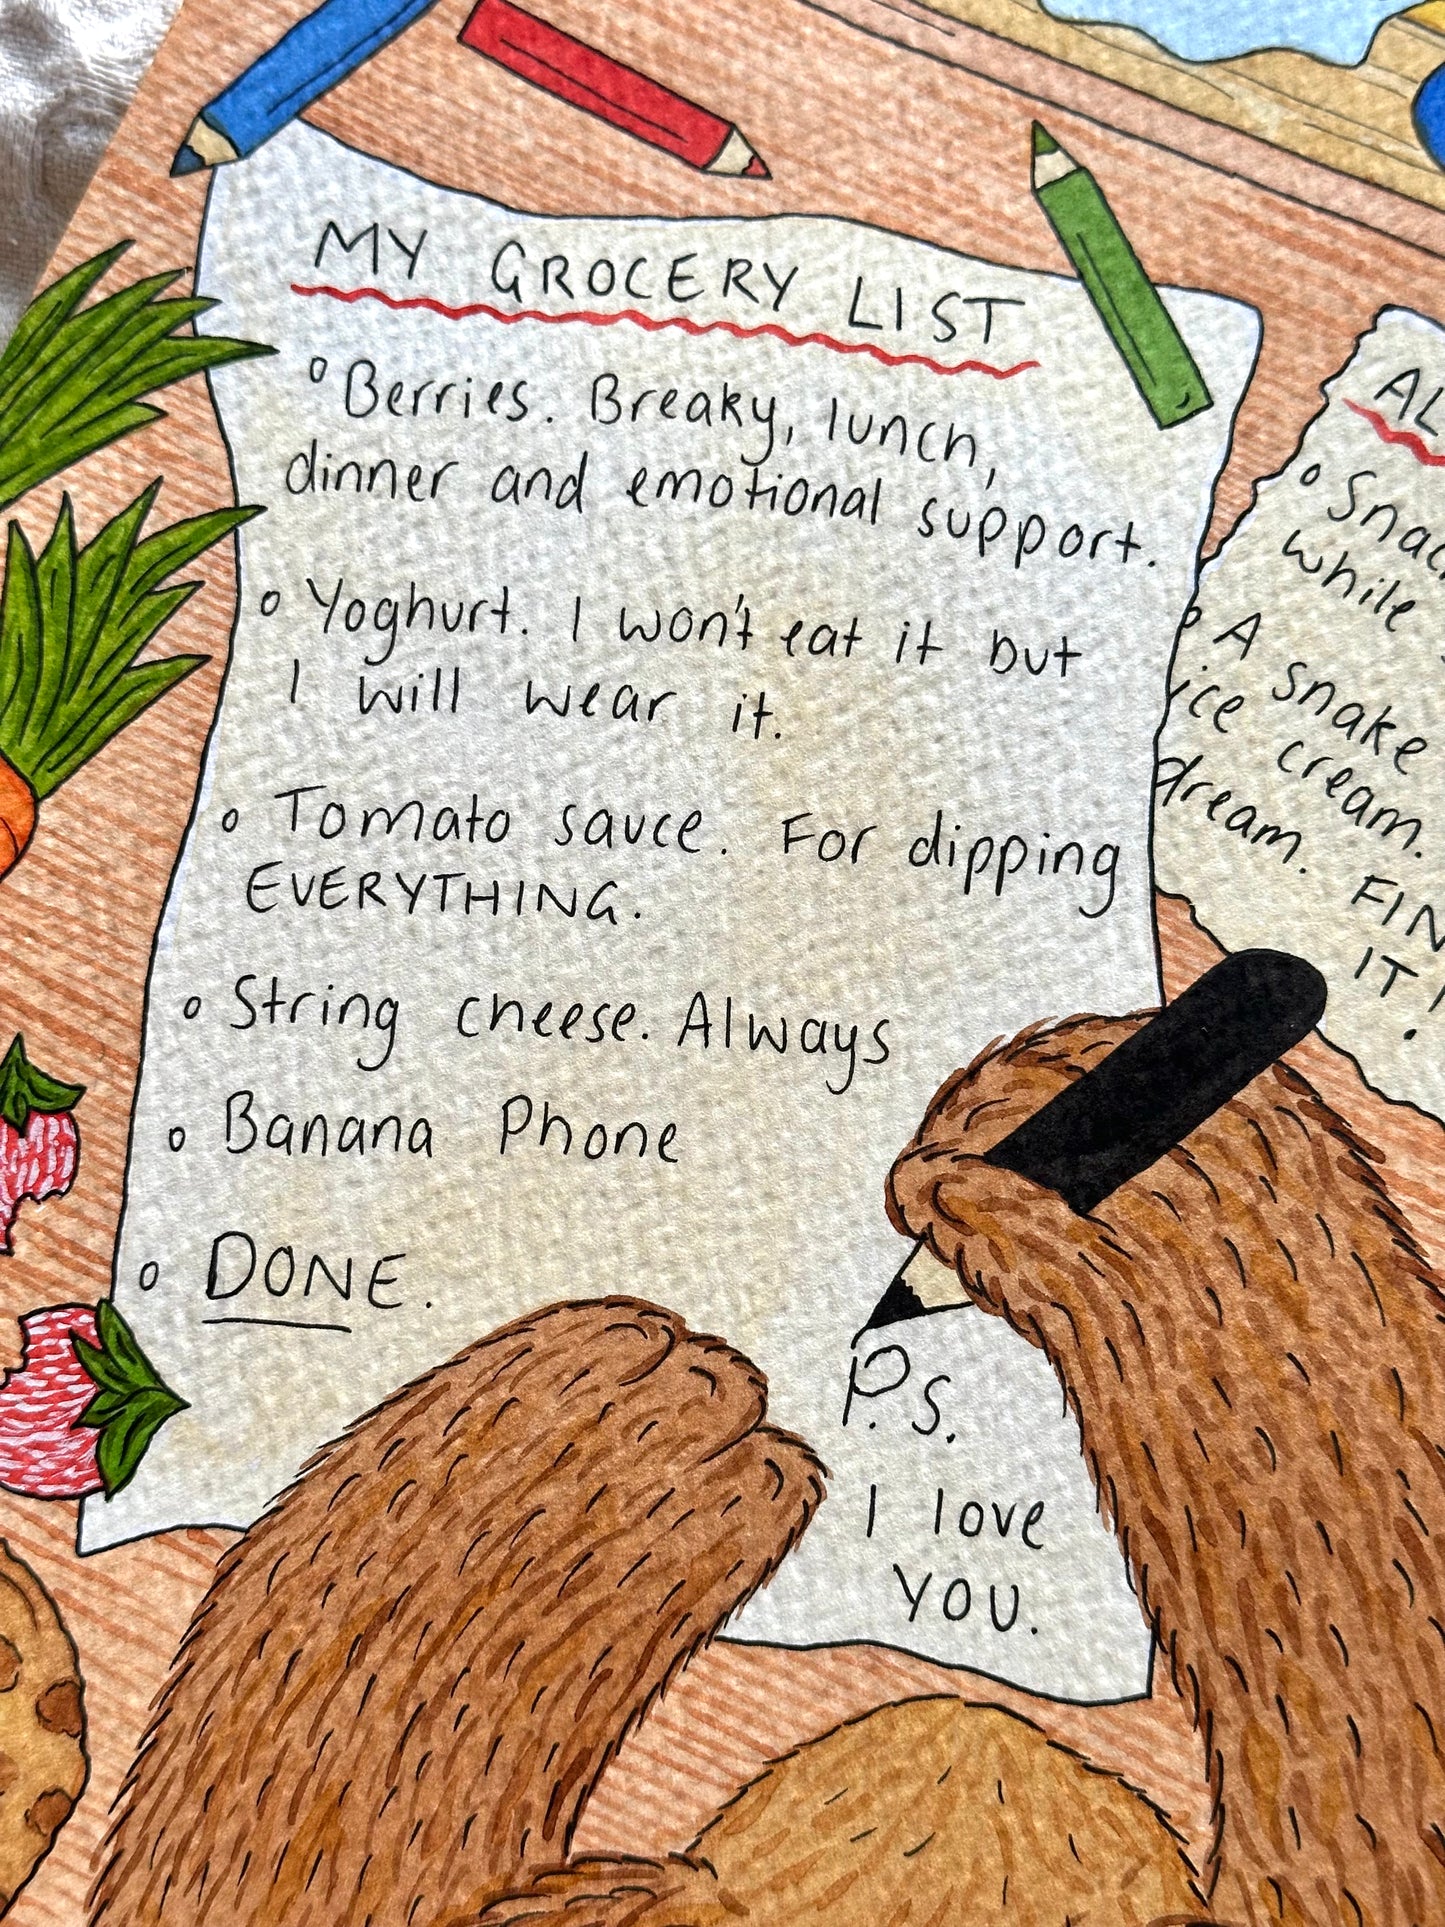 MY GROCERY LIST
Berries. Breaky, lunch,
dinner and emotional support.
Yoghurt. I won't eat it but
I will wear it.
Tomato sauce. For dipping
EVERYTHING.
String cheese. Always
Banana Phone
DONE.
P.S.
I love
YOU.
while
A snake
ice cream.
dream.
IT!